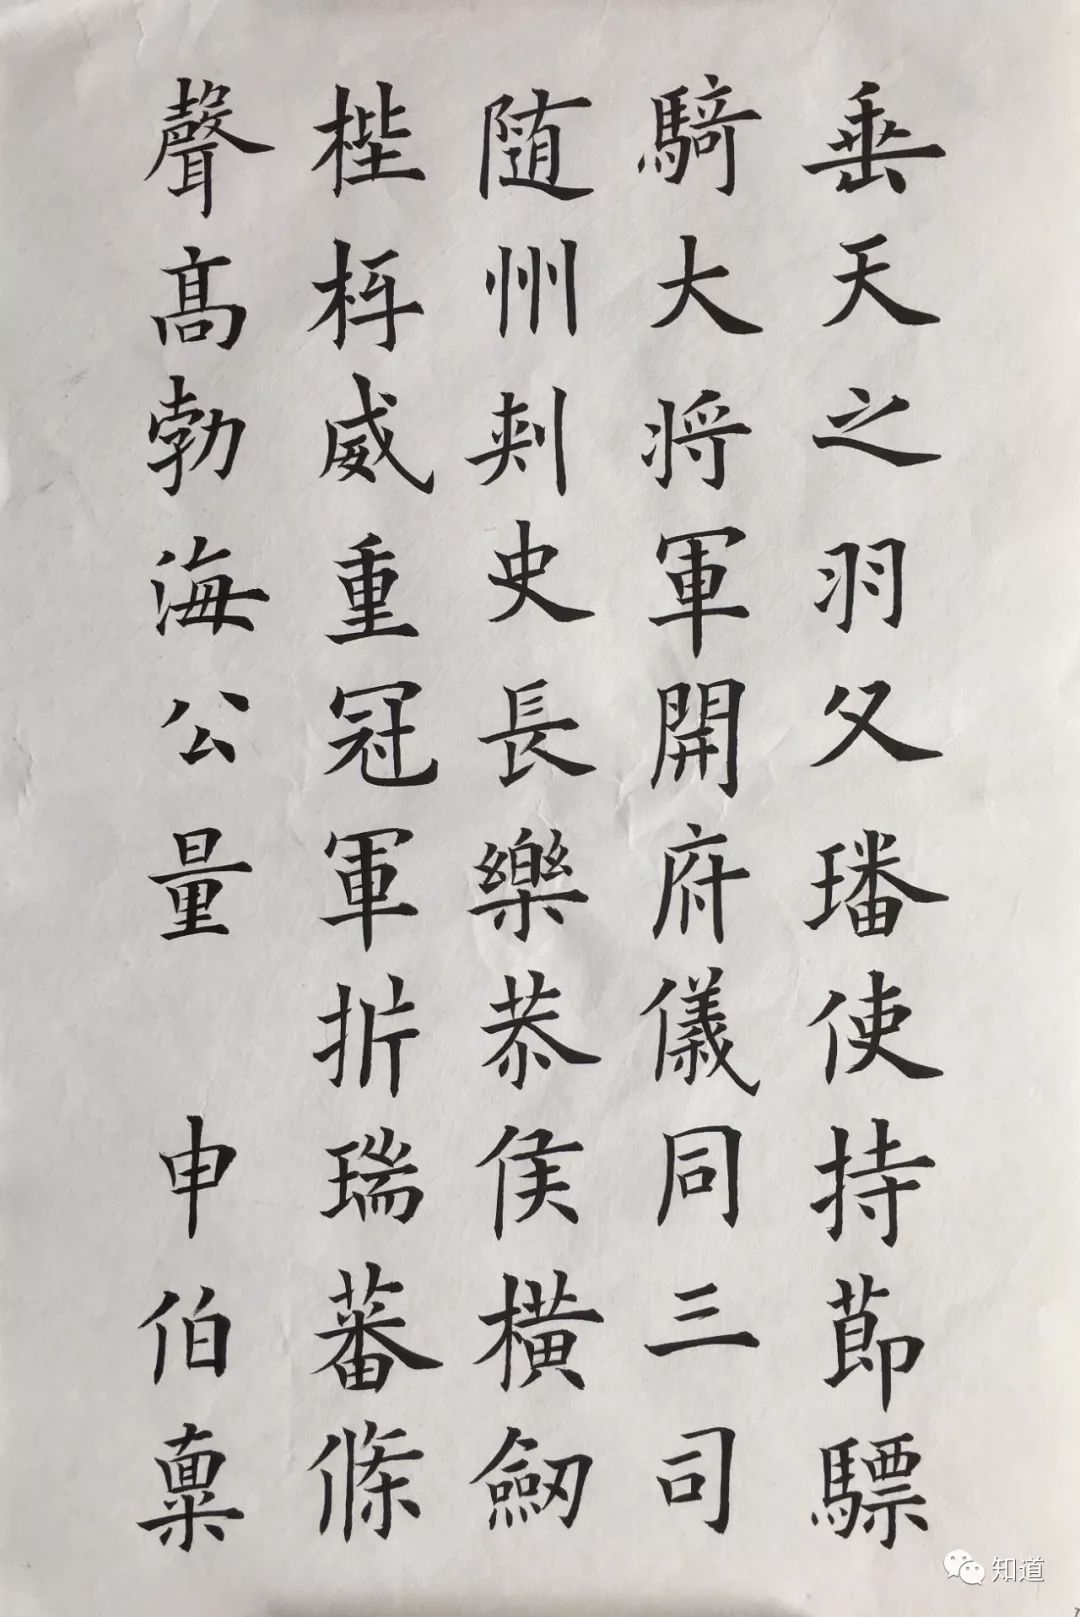 垂天之羽父璠使持節驃
騎大将軍開府儀同三司
随州刾史長樂恭侯橫劒
梐枑威重冠軍折瑞蕃條
聲髙勃海公量 申伯稟
知道